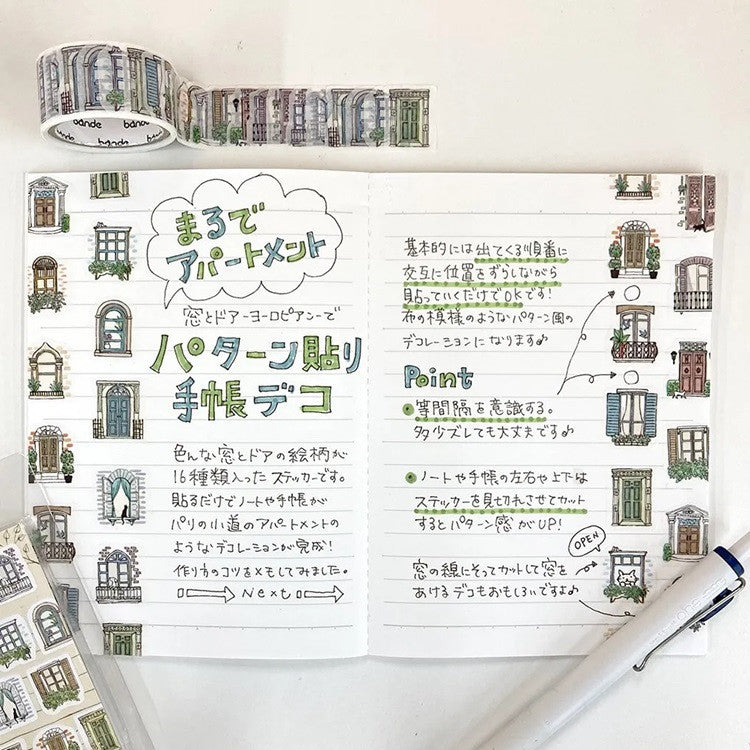 bande bande
まるで
アパートメント
窓とドアーヨーロピアンーで
パターン貼り
手帳デコ
色んな窓とドアの絵柄が
16種類入ったステッカーです。
貼るだけでノートや手帳が
パリの小道のアパートメントの
ようなデコレーションが完成!
作り方のコツをメモしてみました。
Next
基本的には出てくる順番に
交互に位置をずらしながら
貼っていくだけでOKです!
布の模様のようなパターン風の
デコレーションになります♪
Point
等間隔を意識する。
多少ズレても大丈夫です♪
ノートや手帳の左右や上下は
ステッカーを見切れさせてカット
するとパターン感がUP!
OPEN
窓の線にそってカットして窓を
あけるデコもおもしろいですよ♪